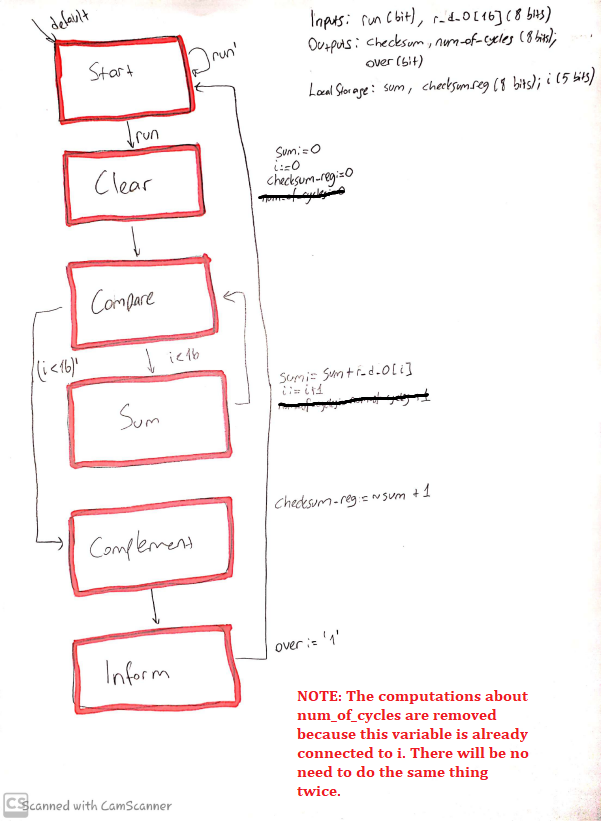 default
Inputs: run (bit), r_d_O[16] (8 bits)
Outputs: checksum, num-of-cycles (8 bits);
over (bit)
Local Storage: sum, checksum_reg (8 bits); i (5 bits)
Start
run'
run
Clear
sum:=0
i:=0
checksum_reg:=0
num_of_cycles:=0
Compare
(i<16)'
i<16
sum:= sum + r_d_O[i]
i:= i+1
Sum
checksum_reg:= ~sum + 1
Complement
over := '1'
Inform
NOTE: The computations about
num_of_cycles are removed
because this variable is already
connected to i. There will be no
need to do the same thing
twice.
CS Scanned with CamScanner